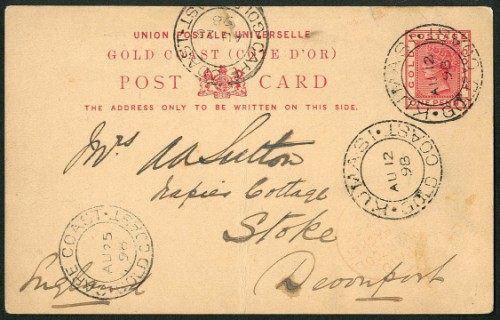 UNION POSTALE UNIVERSELLE
GOLD COAST (CÔTE D'OR)
POST CARD
THE ADDRESS ONLY TO BE WRITTEN ON THIS SIDE.
Mrs AA Sutton
Napier Cottage
Stoke
Devonport
England
KUMASI · GOLD COAST
AU 12
98
KUMASI · GOLD COAST
AU 12
98
CAPE COAST · GOLD COAST
AU 25
98